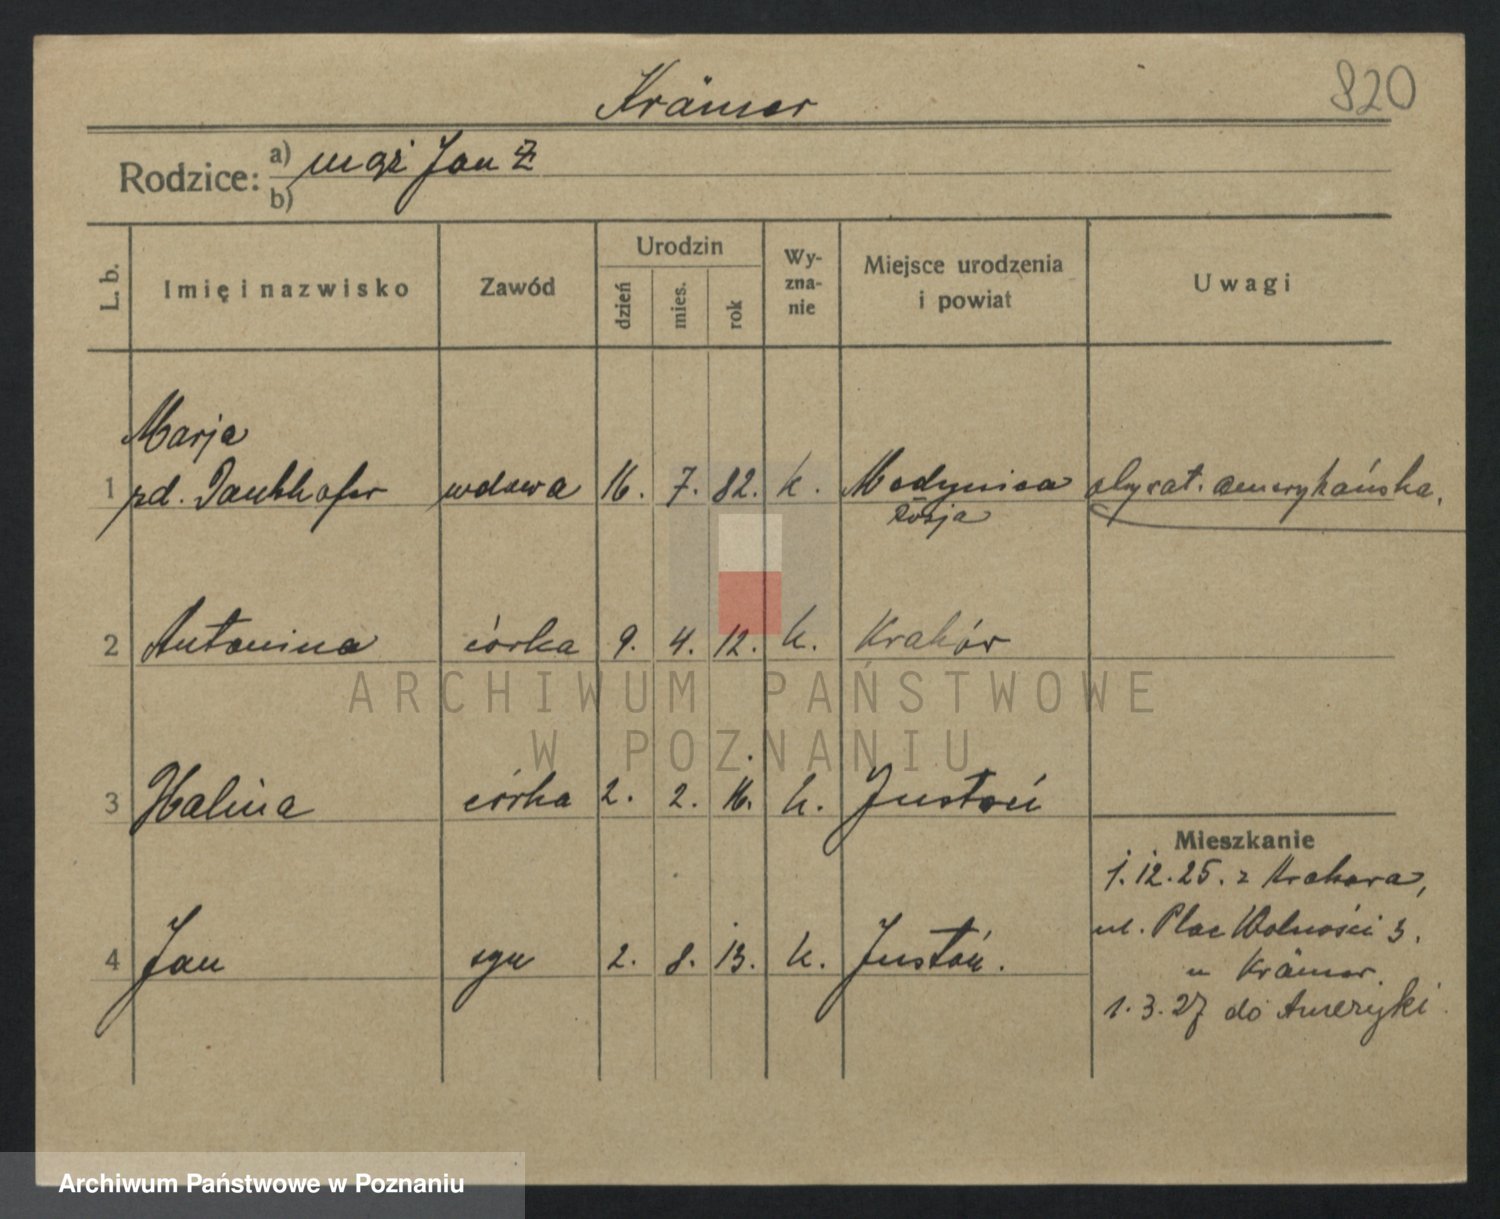 820
Krämer
Rodzice: a) mąż Jan Ż
b)
L. b. Imię i nazwisko Zawód Urodzin dzień mies. rok Wy-zna-nie Miejsce urodzenia i powiat Uwagi
Marja
1 pd. wdowa 16. 7. 82. k. Medynica obywat. amerykańska.
Rosja
2 Antonina córka 9. 4. 12. k. Kraków
ARCHIWUM PAŃSTWOWE
W POZNANIU
3 Halina córka 2. 2. 16. k.
Mieszkanie
1.12.25. z Krakowa,
ul. Plac Wolności 3.
4 Jan syn 2. 8. 13. k.
u Krämer.
1.3.27 do Ameryki.
Archiwum Państwowe w Poznaniu